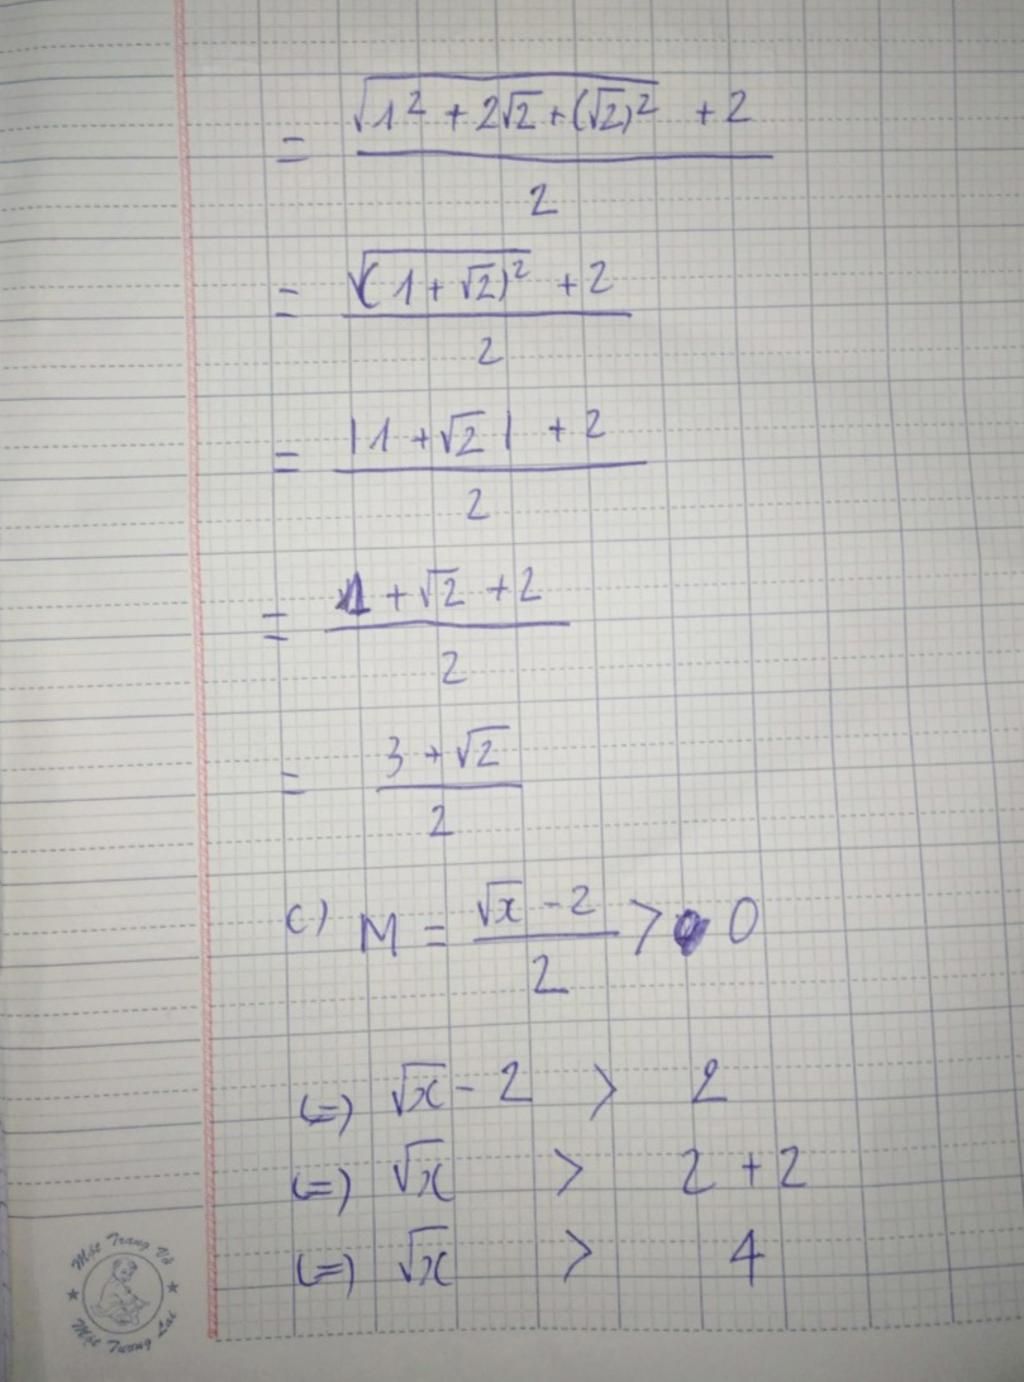 = (√(1² + 2√2 + (√2)²) + 2) / 2
= (√((1 + √2)²) + 2) / 2
= (|1 + √2| + 2) / 2
= (1 + √2 + 2) / 2
= (3 + √2) / 2
c) M = (√x - 2) / 2 > 0
(=) √x - 2 > 2
(=) √x > 2 + 2
(=) √x > 4
Một Trang Vở
Một Tương Lai